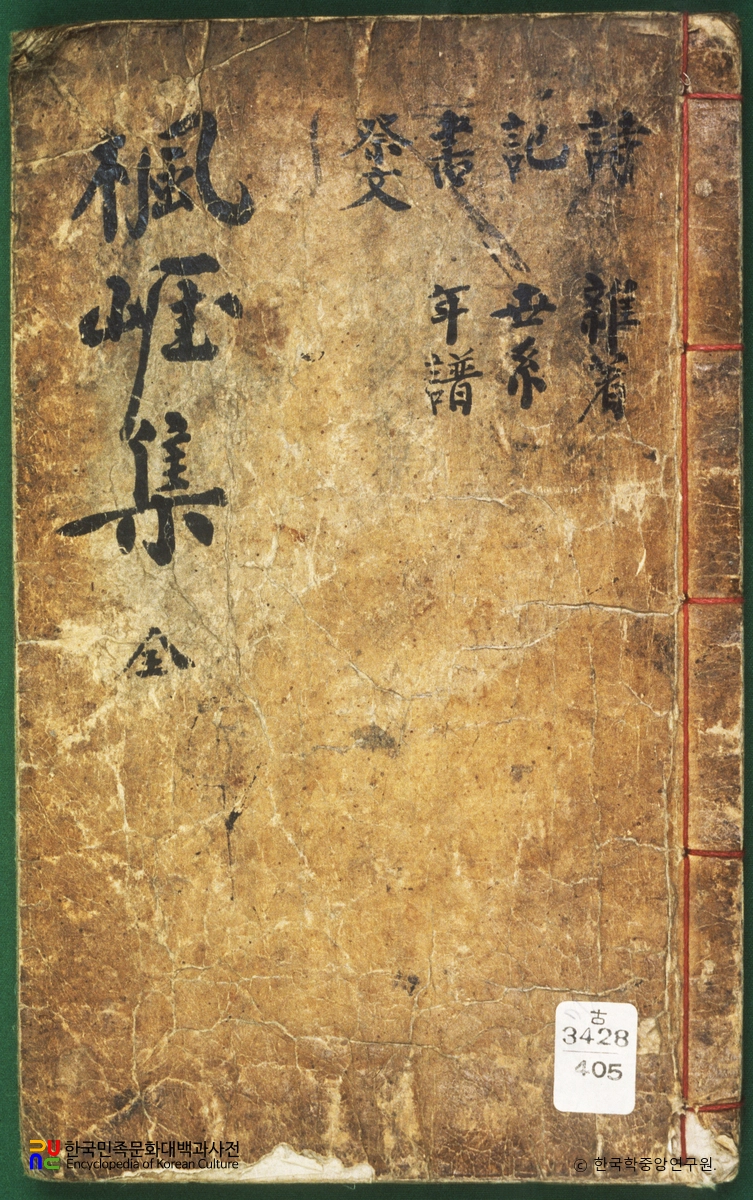 詩 雜著
記 世系
書 年譜
祭文
楓崕集 全
古
3428
405
한국민족문화대백과사전
Encyclopedia of Korean Culture
© 한국학중앙연구원.